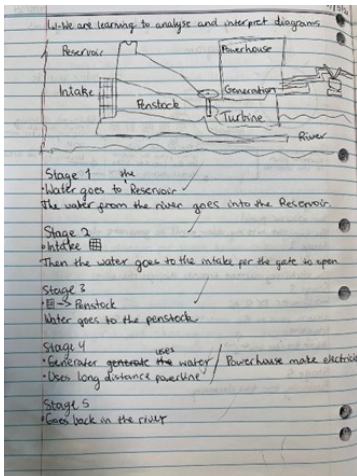 W-We are learning to analyse and interpret diagrams
Reservoir
Powerhouse
Intake
Generation
Penstock
Turbine
River
Stage 1
the
•Water goes to Reservoir
The water from the river goes into the Reservoir.
Stage 2
•Intake
Then the water goes to the intake per the gate to open
Stage 3
•-> Penstock
Water goes to the penstock
Stage 4
uses
•Generater generate the water / Powerhouse make electrici
•Uses long distance powerline
Stage 5
•Goes back in the river